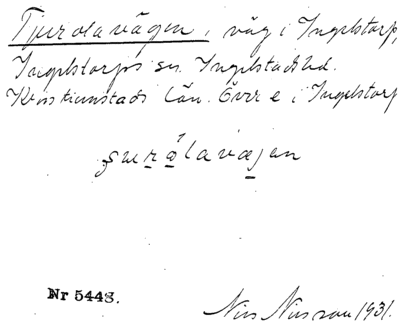 Tjurolavägen, väg i Ingelstorp,
Ingelstorps sn. Ingelstads hd.
Kristianstads län. Över e i Ingelstorp
Nr 5448.
Nils Nilsson 1931.